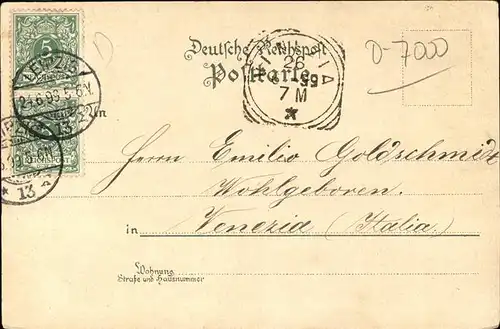 5
D-7000
Deutsche Reichspost
Postkarte
LEIPZIG
24.6.99.5-6.N.
13
An
VENEZIA
26
6-99
7 M
*
Herrn Emilio Goldschmidt
Wohlgeboren.
in Venezia (Italia)
* 13
Wohnung
Straße und Hausnummer